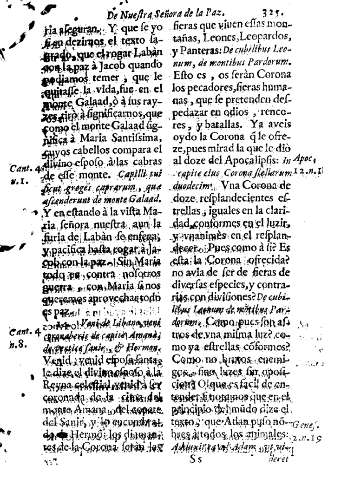 De Nuestra Señora de la Paz. 325.
ria asseguran. Y que se yo
si en dezirnos el texto sa-
grado, que al rogar Labàn
con la paz à Jacob quando
podiamos temer, que le
quitasse la vida, fue en el
monte Galaad, ò à sus ray-
zes, tirò à significarnos, que
como el monte Galaad sig-
nifica à Maria Santissima,
cuyos cabellos compara el
divino esposo à las cabras
de esse monte. Capilli tui
sicut greges caprarum, que
ascenderunt de monte Galaad.
Y en estando à la vista Ma-
ria señora nuestra aun la
furia de Labàn se enfrena,
y pacifica hasta rogar à Ja-
cob con la paz. Sin Maria
todo es contra nosotros
guerra, con Maria si nos
queremos aprovechar todo
es paz.
Cant. 4.
n.1.
Veni de Libano, veni
coronaberis de capite Amanà;
de vertice Sanir, & Hermon.
Cant. 4
n.8.
Venid, venid esposa santa,
le dize el divino esposo à la
Reyna celestial, venid à ser
coronada de la cima del
monte Amana, del copete
del Sanir, y lo encumbra-
do de Hermon, los diaman-
tes de la Corona seràn las
fieras que viven essas mon-
tañas, Leones, Leopardos,
y Panteras: De cubilibus Leo-
num, de montibus Pardorum.
Esto es, os seràn Corona
los pecadores, fieras huma-
nas, que se pretenden des-
pedazar en odios, renco-
res, y batallas. Ya aveis
oydo la Corona q̃ le ofre-
ze, pues mirad la que le diò
al doze del Apocalipsis: In
capite eius Corona stellarum
duodecim. Vna Corona de
doze, resplandecientes es-
trellas, iguales en la clari-
dad, conformes en el luzir,
y vnanimes en el resplan-
decer. Pues como à si? Es
esta la Corona ofrecida?
no avia de ser de fieras de
diversas especies, y contra-
rias con divisiones? De cubi-
libus Leonum de montibus Par-
dorum. Como pues son as-
tros de vna misma luz? co-
mo ya estrellas cõformes?
Como no luzes enemi-
gos, sino luzes sin oposi-
cion? O que es facil de en-
tender si notamos que en el
principio del mũdo dize el
texto, que Adan puso nõ-
bres à todos los animales:
Apoc,
12.n.1.
Genes.
2.n.19
Ss